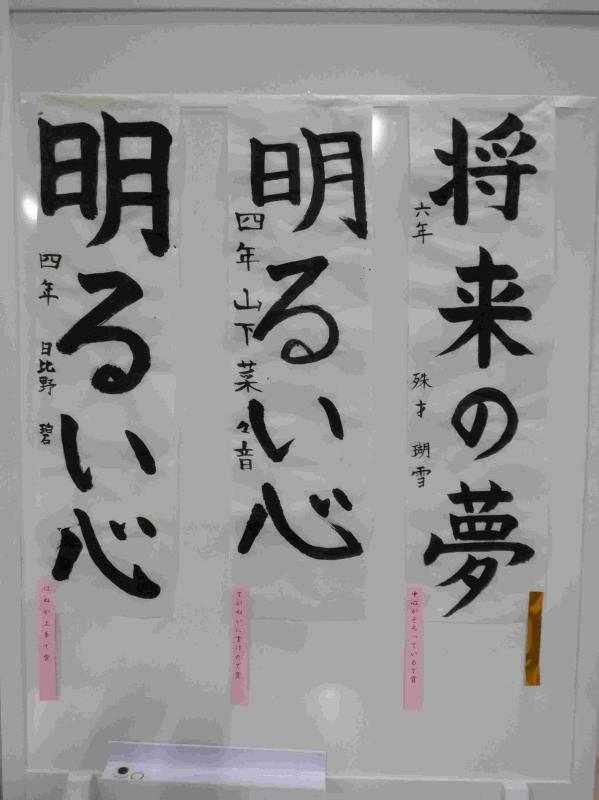 将来の夢
六年 殊才 瑚雪
中心がそろっているで賞
明るい心
四年 山下 菜々音
ていねいに書けたで賞
明るい心
四年 日比野 碧
はねが上手で賞